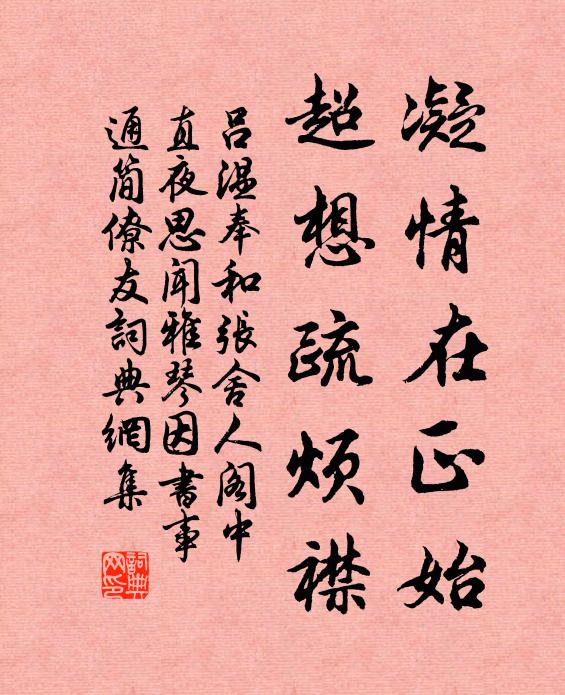 凝情在正始
超想疏烦襟
呂温奉和張舍人阁中
直夜思闻雅琴因書事
通简僚友詞典網集
詞典
网印